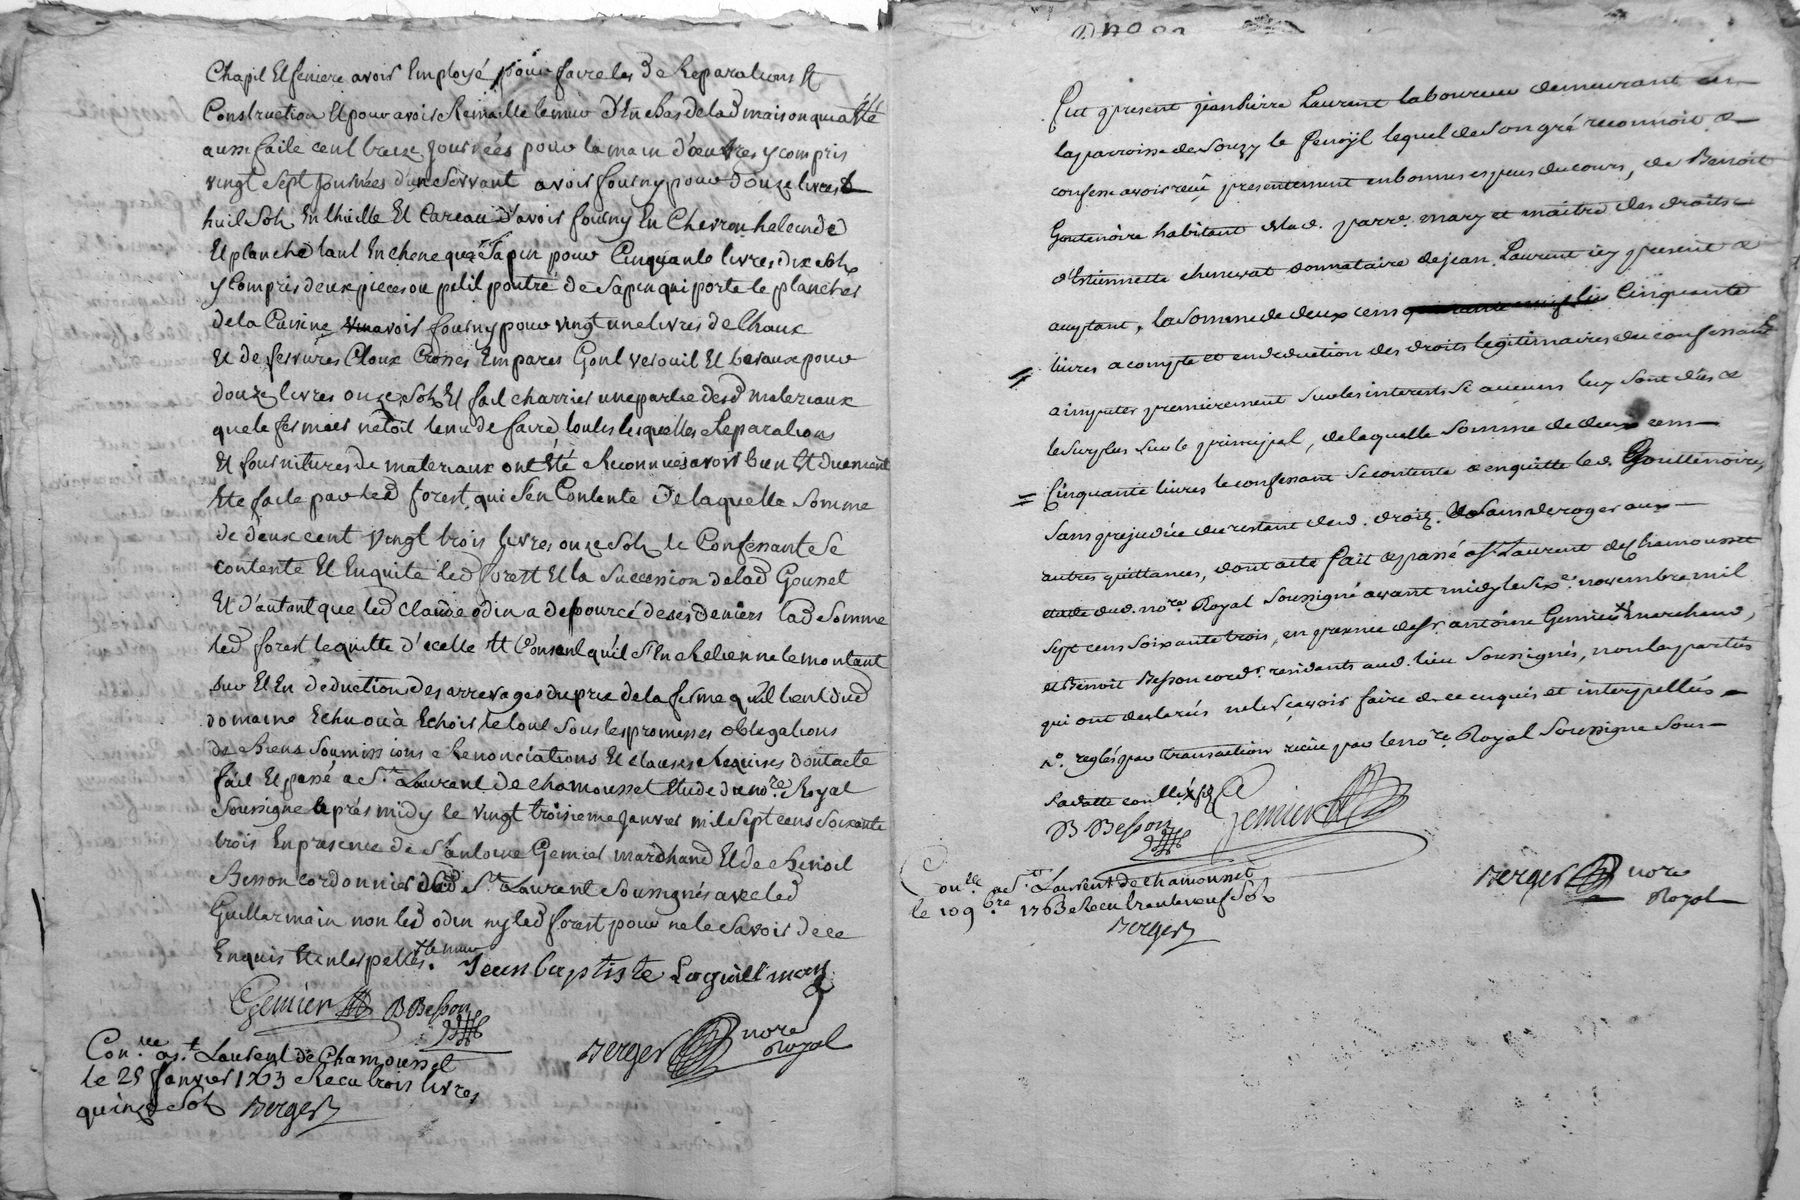 Chapil Et feniere avoir Employé pour faire les de Reparations Et
Construction Et pour avoir Remaillé le mur d'En bas de lad maison qua été
aussi faite cent treize journées pour la main d'œuvres y compris
vingt sept journées d'un servant avoir fourny pour douze livres
huit Sols En thuille Et Careau d'avoir fourny En Chevron
Et planche tant En chene que Sapin pour Cinquante livres dix sols
y Compris deux pieces ou petit poutre de Sapin qui porte le plancher
de la Cuisine avoir fourny pour vingt une livres de Chaux
Et de ferrures Cloux Crosses Empares Gont verouil Et pour
douze livres onze Sols Et fait charrier une partie desd materiaux
que le fermier netoit tenu de faire toutes lesquelles Reparations
Et fournitures de materiaux ont Eté Reconnues avoir bien Et duement
Eté faite par led forest qui s'en Contente De laquelle Somme
de deux cent vingt trois livres onze Sols le Confessante Se
contente Et Enquite led forest Et la Succession delad Gousset
Et d'autant que led Claude odin a débourcé de ses deniers lad Somme
led forest le quitte d'icelle Et Consent qu'il s'En Retienne le montant
sur Et En deduction des arrerages du prix de la ferme qu'il tient dud
domaine Echu ou à Echoir le tout Sous les promesses obligations
de Biens Soumissions Renonciations Et clauses Requises dont acte
fait Et passé a St. Laurent de Chamousset Etude du nore. Royal
Soussigné après midy le vingt troisieme Janvier mil Sept cens soixante
trois En presence de Sr antoine Gemier marchand Et de Benoit
Besson cordonnier dud St. Laurent Soussignés avec led
Guillarmain non led odin ny led forest pour ne le Savoir de ce
Enquis Et interpellés. le mur
Jean baptiste
Gemier B Besson
Berger nore
Royal
Con.lee a St. Laurent de Chamousset
le 25 Janvier 1763 Recu trois livres
quinze Sols Berger
Fut present jean pierre Laurent laboureur demeurant en
la parroisse de Souzy le fenoÿl lequel de Son gré reconnoit &
confesse avoir reçu presentement en bonnes especes du cours, de Benoit
Goutenoire habitant de lad. parre. mary et maitre des droits
d'Estiennette chenevat donnataire de jean Laurent icy present &
acceptant, la Somme de deux cens Cinquante
livres a compte et en deduction des droits legitimaires du confessant
a imputer premierement Sur les interests Se aucuns luy Sont dües &
le Surplus Sur le principal, de laquelle Somme de deux cens
Cinquante livres le confessant Se contente & en quitte led. Gouttenoire,
Sans prejudice du restant desd. droits. & Sans deroger aux
autres quittances, dont acte fait et passé a St. Laurent de Chamousset
etude dud. nore. Royal Soussigné avant midy le Sixe. novembre mil
Sept cens Soixante trois, en presence de Sr. antoine Gemier marchand,
et Benoit Besson cordr. residants aud. lieu Soussignés, non les parties
qui ont declarés ne le Sçavoir faire de ce enquis et interpellés
No. reglés par transaction reçüe par le nore. Royal Soussigné Sous
sa datte
B Besson Gemier
Berger nore
Royal
Con.lee a St. Laurent de Chamousset
le 10 9bre 1763 Recu trente neuf Sols
Berger